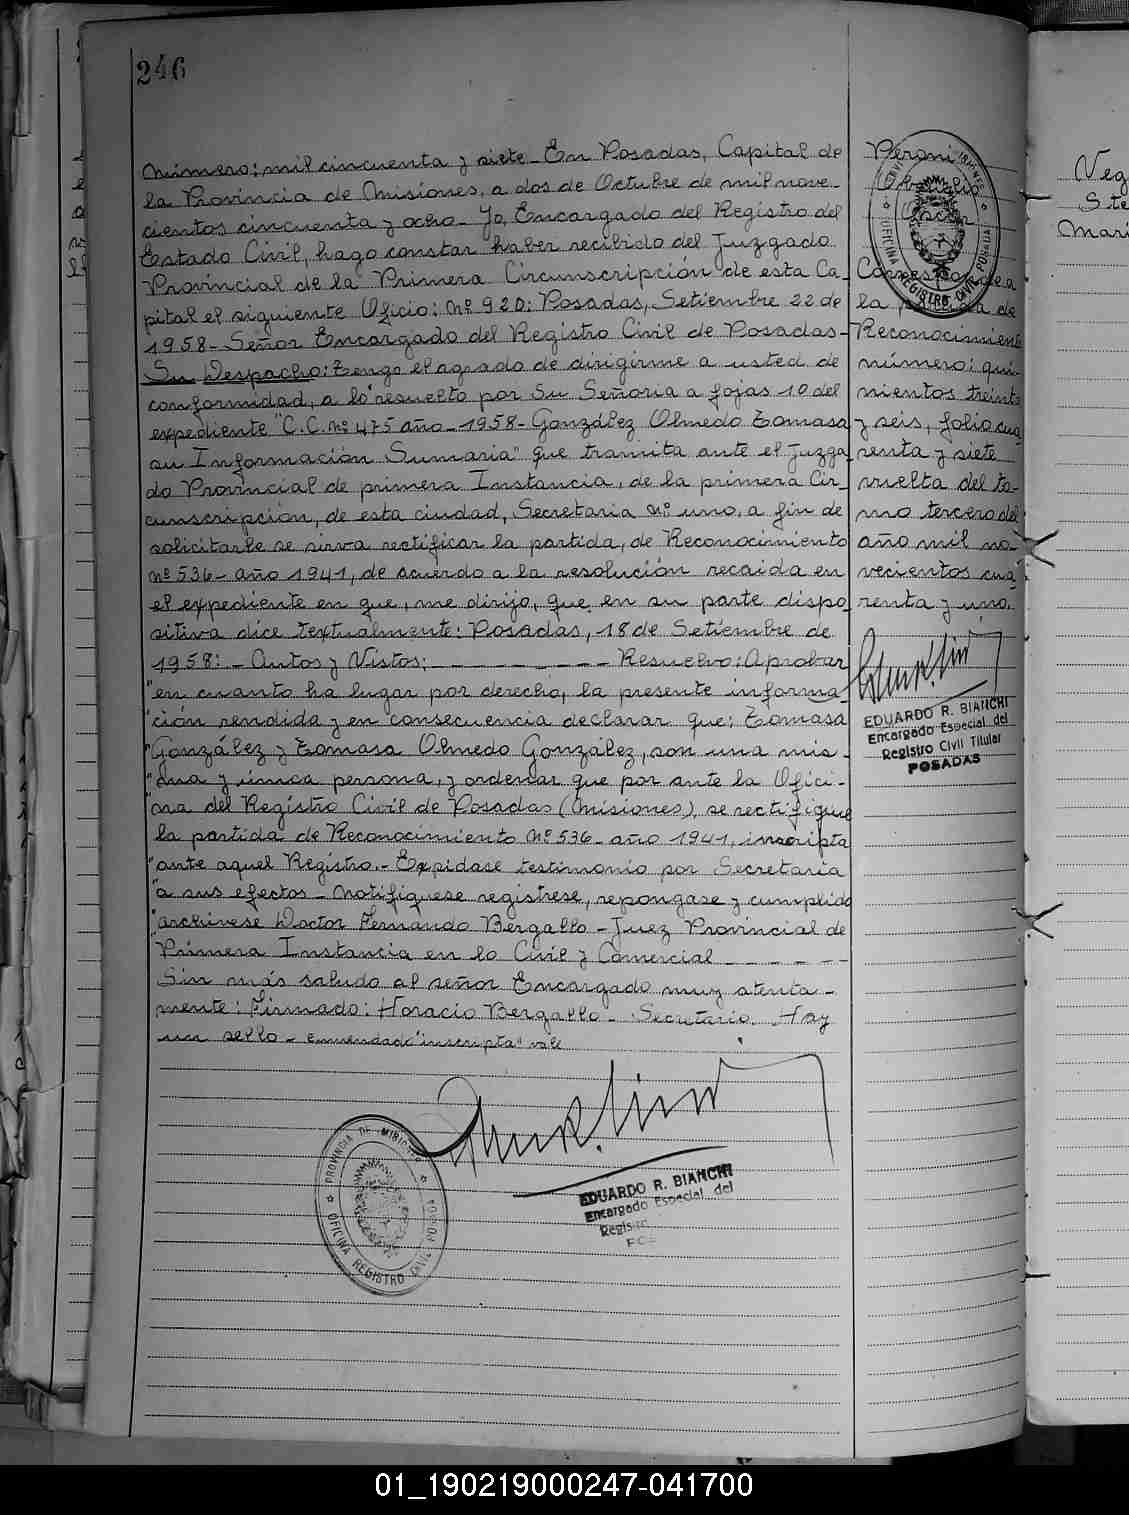 246
Número: mil cincuenta y siete - En Posadas, Capital de
la Provincia de Misiones, a dos de Octubre de mil nove-
cientos cincuenta y ocho - Yo, Encargado del Registro del
Estado Civil, hago constar haber recibido del Juzgado
Provincial de la Primera Circunscripción de esta Ca-
pital el siguiente Oficio: Nº 920: Posadas, Setiembre 22 de
1958 - Señor Encargado del Registro Civil de Posadas -
Su Despacho: Tengo el agrado de dirigirme a usted de
conformidad, a lo resuelto por Su Señoria a fojas 10 del
expediente "C.C. Nº 475 año - 1958 - González Olmedo Tomasa
su Información Sumaria" que tramita ante el Juzga-
do Provincial de primera Instancia, de la primera Cir-
cunscripción, de esta ciudad, Secretaria Nº uno, a fin de
solicitarle se sirva rectificar la partida, de Reconocimiento
Nº 536 - año 1941, de acuerdo a la resolución recaida en
el expediente en que, me dirijo, que en su parte dispo-
sitiva dice textualmente: Posadas, 18 de Setiembre de
1958: - Autos y Vistos: - - - - - - - - - Resuelvo: Aprobar
"en cuanto ha lugar por derecho, la presente informa-
"ción rendida y en consecuencia declarar que: Tomasa
"González y Tomasa Olmedo González, son una mis-
"ma y única persona, y ordenar que por ante la Ofici-
"na del Registro Civil de Posadas (Misiones), se rectifique
la partida de Reconocimiento Nº 536 - año 1941, inscripta
"ante aquel Registro. - Expidase testimonio por Secretaria
"a sus efectos - Notifiquese registrese, repongase y cumplido
"archivese Doctor Fernando Bergallo - Juez Provincial de
Primera Instancia en lo Civil y Comercial - - - - - -
Sin más saludo al señor Encargado muy atenta-
mente: Firmado: Horacio Bergallo - Secretario. Hay
un sello - Enmendado "inscripta" vale
PROVINCIA DE MISIONES
OFICINA REGISTRO CIVIL POSADAS
EDUARDO R. BIANCHI
Encargado Especial del
Registro
Peroni
Oscar
OFICINA REGISTRO CIVIL POSADAS
Corresponde a
la partida de
Reconocimiento
número: qui-
nientos treinta
y seis, folio cua-
renta y siete
vuelta del to-
mo tercero del
año mil no-
vecientos cua-
renta y uno.
EDUARDO R. BIANCHI
Encargado Especial del
Registro Civil Titular
POSADAS
Veg
Ste
Mari
01_190219000247-041700